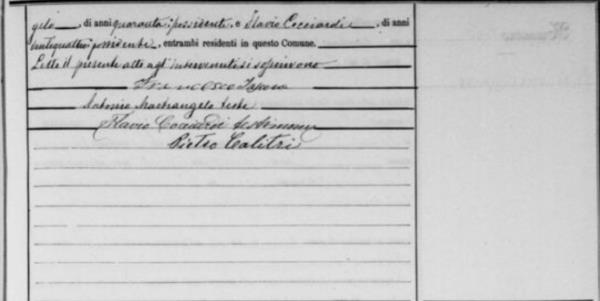 gelo, di anni quaranta possidente e Flavio Cocciardi, di anni
ventiquattro possidente, entrambi residenti in questo Comune.
Letto il presente atto agl'intervenuti si soscrivono
Francesco
Antonio Mastrangelo teste
Flavio Cocciardi testimone
Pietro Calitri